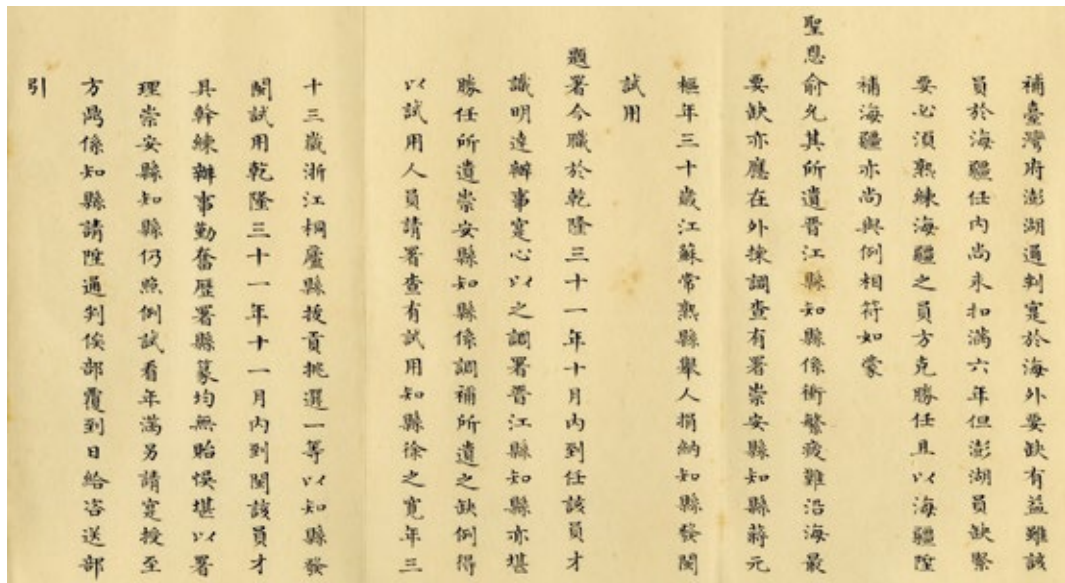 補臺灣府澎湖通判寔於海外要缺有益雖該
員於海疆任內尚未扣滿六年但澎湖員缺緊
要必須熟練海疆之員方克勝任且以海疆陞
補海疆亦尚與例相符如蒙
聖恩俞允其所遺晉江縣知縣係衝繁疲難沿海最
要缺亦應在外揀調查有署崇安縣知縣蔣元
樞年三十歲江蘇常熟縣舉人捐納知縣發閩
試用
題署今職於乾隆三十一年十月內到任該員才
識明達辦事寔心以之調署晉江縣知縣亦堪
勝任所遺崇安縣知縣係調補所遺之缺例得
以試用人員請署查有試用知縣徐之寬年三
十三歲浙江桐廬縣拔貢挑選一等以知縣發
閩試用乾隆三十一年十一月內到閩該員才
具幹練辦事勤奮歷署縣篆均無貽悞堪以署
理崇安縣知縣仍照例試看年滿另請寔授至
方鳬係知縣請陞通判俟部覆到日給咨送部
引